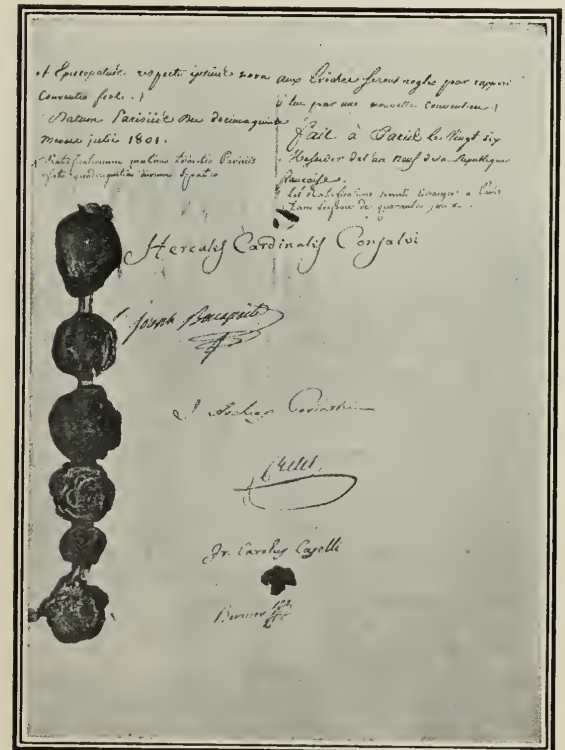 et Episcopatuum respectu ipsius nova
Conventio fiet.
Datum Parisiis die decima quinta
Mensis julii 1801.
aux Evêchés seront réglés par rapport
à lui par une nouvelle Convention.
fait à Paris le Vingt six
Messidor de l'an neuf de la République
française.
Les ratifications seront échangées à Paris
dans l'espace de quarante jours.
Hercules Cardinalis Consalvi
Joseph Bonaparte
J. Archiep. Corinthi
Cretet
Fr. Carolus Caselli
Bernier